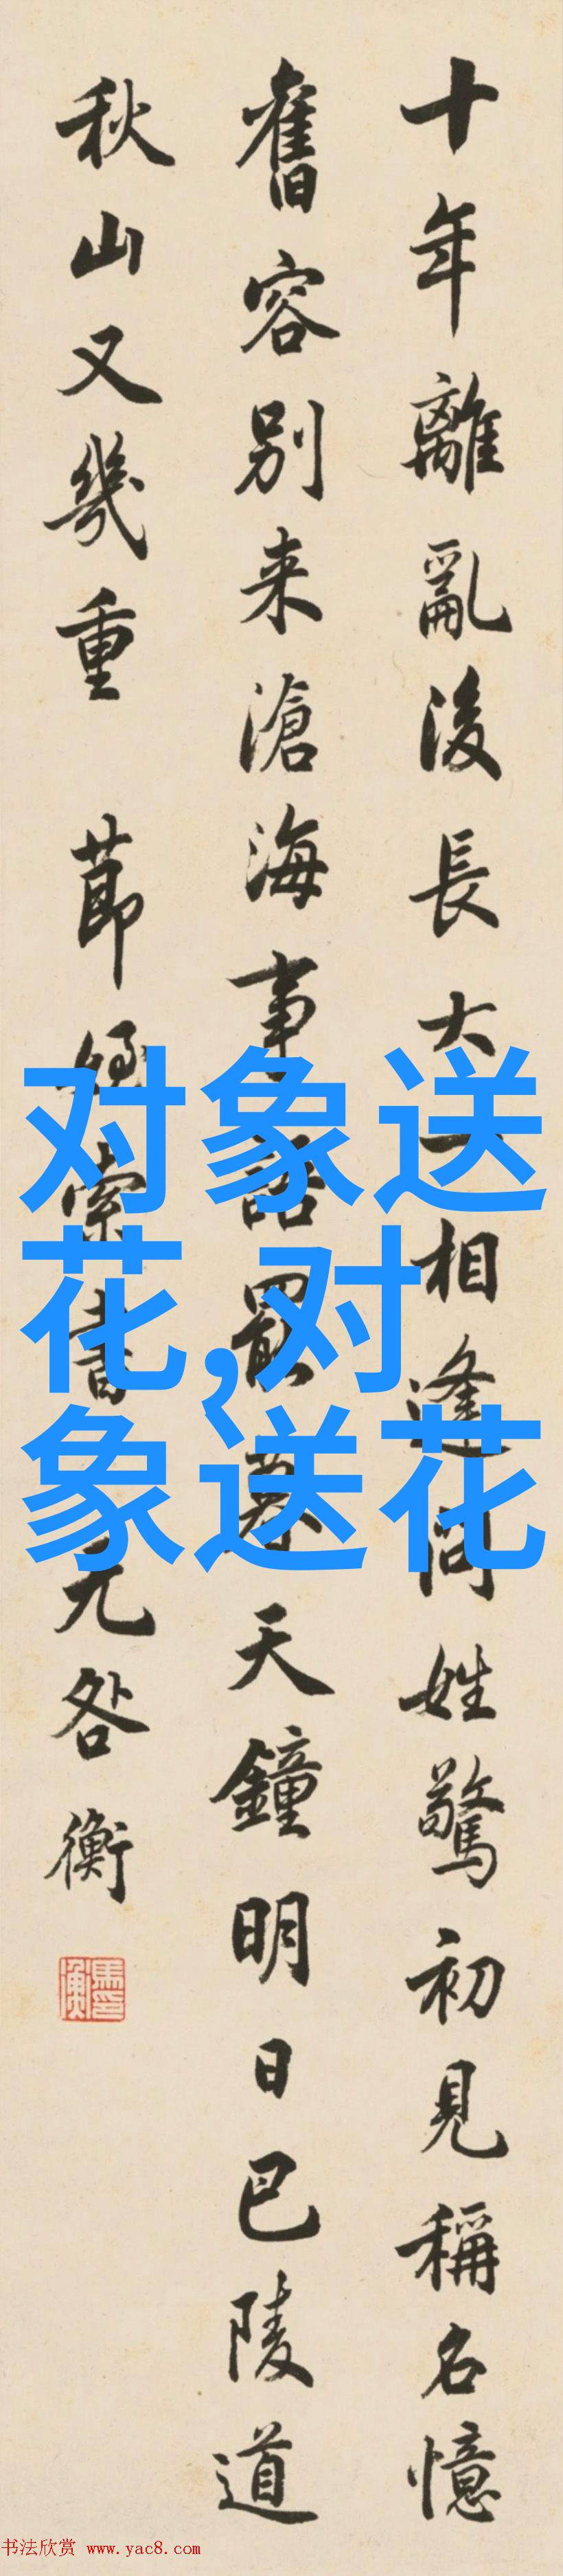 十年離亂後長大一相逢問姓驚初見稱名憶
舊容別来滄海事語罷暮天鐘明日巴陵道
秋山又幾重 莭索書 无咎衡
馬衡印
对象送
花,对
象送花
书法欣赏 www.yac8.com